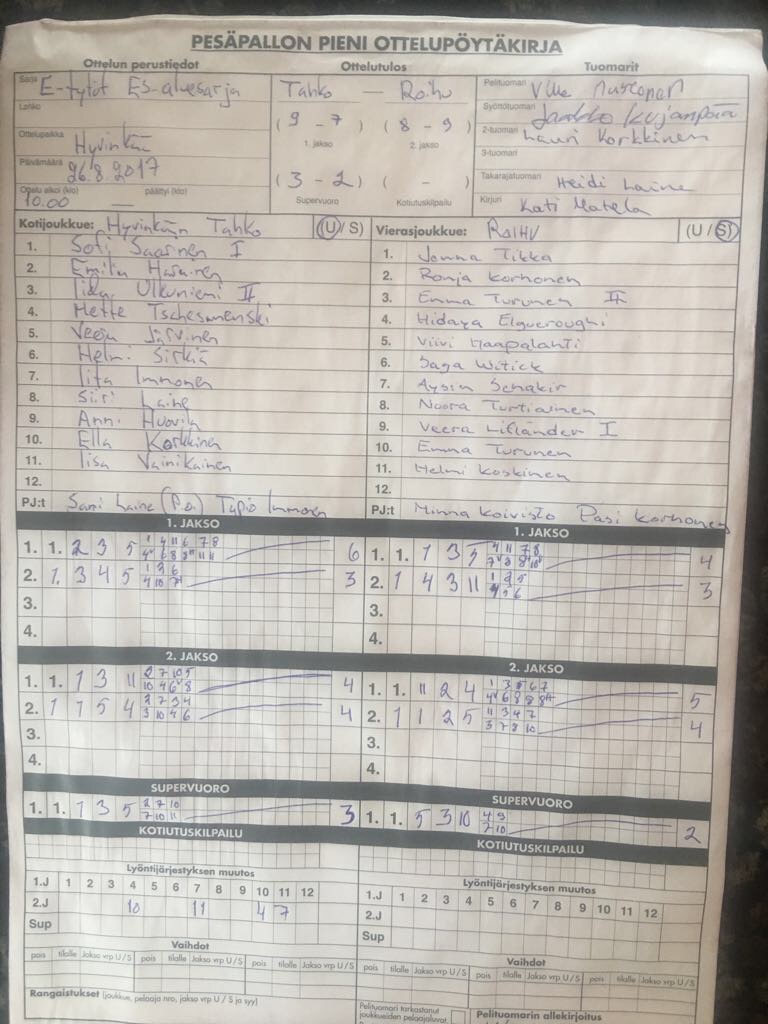 PESÄPALLON PIENI OTTELUPÖYTÄKIRJA
Ottelun perustiedot Ottelutulos Tuomarit
Sarja E-tytöt ES-aluesarja Tahko — Roihu Pelituomari
Lohko Syöttötuomari Jaakko Kujanpää
(9 - 7) (8 - 9) 2-tuomari Lauri Korkkinen
Ottelupaikka Hyvinkää 1. jakso 2. jakso 3-tuomari
Päivämäärä 26.8.2017 (3 - 2) ( - ) Takarajatuomari Heidi Laine
Ottelu alkoi (klo) päättyi (klo) Supervuoro Kotiutuskilpailu Kirjuri Kati
10.00 —
Kotijoukkue: Hyvinkään Tahko (U / S) Vierasjoukkue: Roihu (U / S)
1. Sofi Saarinen I 1. Jonna Tikka
2. Emilia 2. Ronja Korhonen
3. Iida Ulkuniemi II 3. Emma Turunen II
4. Mette 4. Hidaya Elgueroughi
5. Veera Järvinen 5. Viivi Haapalahti
6. Helmi Sirkiä 6. Saga Witick
7. Iita Immonen 7. Aysin
8. Siiri Laine 8. Noora Turtiainen
9. Anni Huovila 9. Veera Lifländer I
10. Ella Korkkinen 10. Emma Turunen
11. Iisa Vainikainen 11. Helmi Koskinen
12. 12.
PJ:t Sami Laine (P.J.) Tapio Immonen PJ:t Minna Koivisto Pasi Korhonen
1. JAKSO 1. JAKSO
1. 1. 2 3 5 1 4 11 6 7 8 6 1. 1. 1 3 5 4 11 7 8 4
2. 1. 3 4 5 1 2 6 3 2. 1 4 3 11 3
3. 3.
4. 4.
2. JAKSO 2. JAKSO
1. 1. 1 3 11 2 7 10 5 4 1. 1. 11 2 4 1 3 5 6 7 5
10 4 6 8
2. 1 1 5 4 2 7 3 4 4 2. 1 1 2 5 11 3 4 7 4
3 10 4 6 3 7 8 10
3. 3.
4. 4.
SUPERVUORO SUPERVUORO
1. 1. 1 3 5 2 7 10 3 1. 1. 5 3 10 4 9 2
7 10 11 7 10
KOTIUTUSKILPAILU KOTIUTUSKILPAILU
Lyöntijärjestyksen muutos Lyöntijärjestyksen muutos
1.J 1 2 3 4 5 6 7 8 9 10 11 12 1.J 1 2 3 4 5 6 7 8 9 10 11 12
2.J 10 11 4 7 2.J
Sup Sup
Vaihdot Vaihdot
pois tilalle Jakso vrp U / S pois tilalle Jakso vrp U / S pois tilalle Jakso vrp U / S pois tilalle Jakso vrp U / S
Rangaistukset (joukkue, pelaaja nro, jakso vrp U / S ja syy) Pelituomari tarkastanut joukkueiden pelaajaluvat. Pelituomarin allekirjoitus